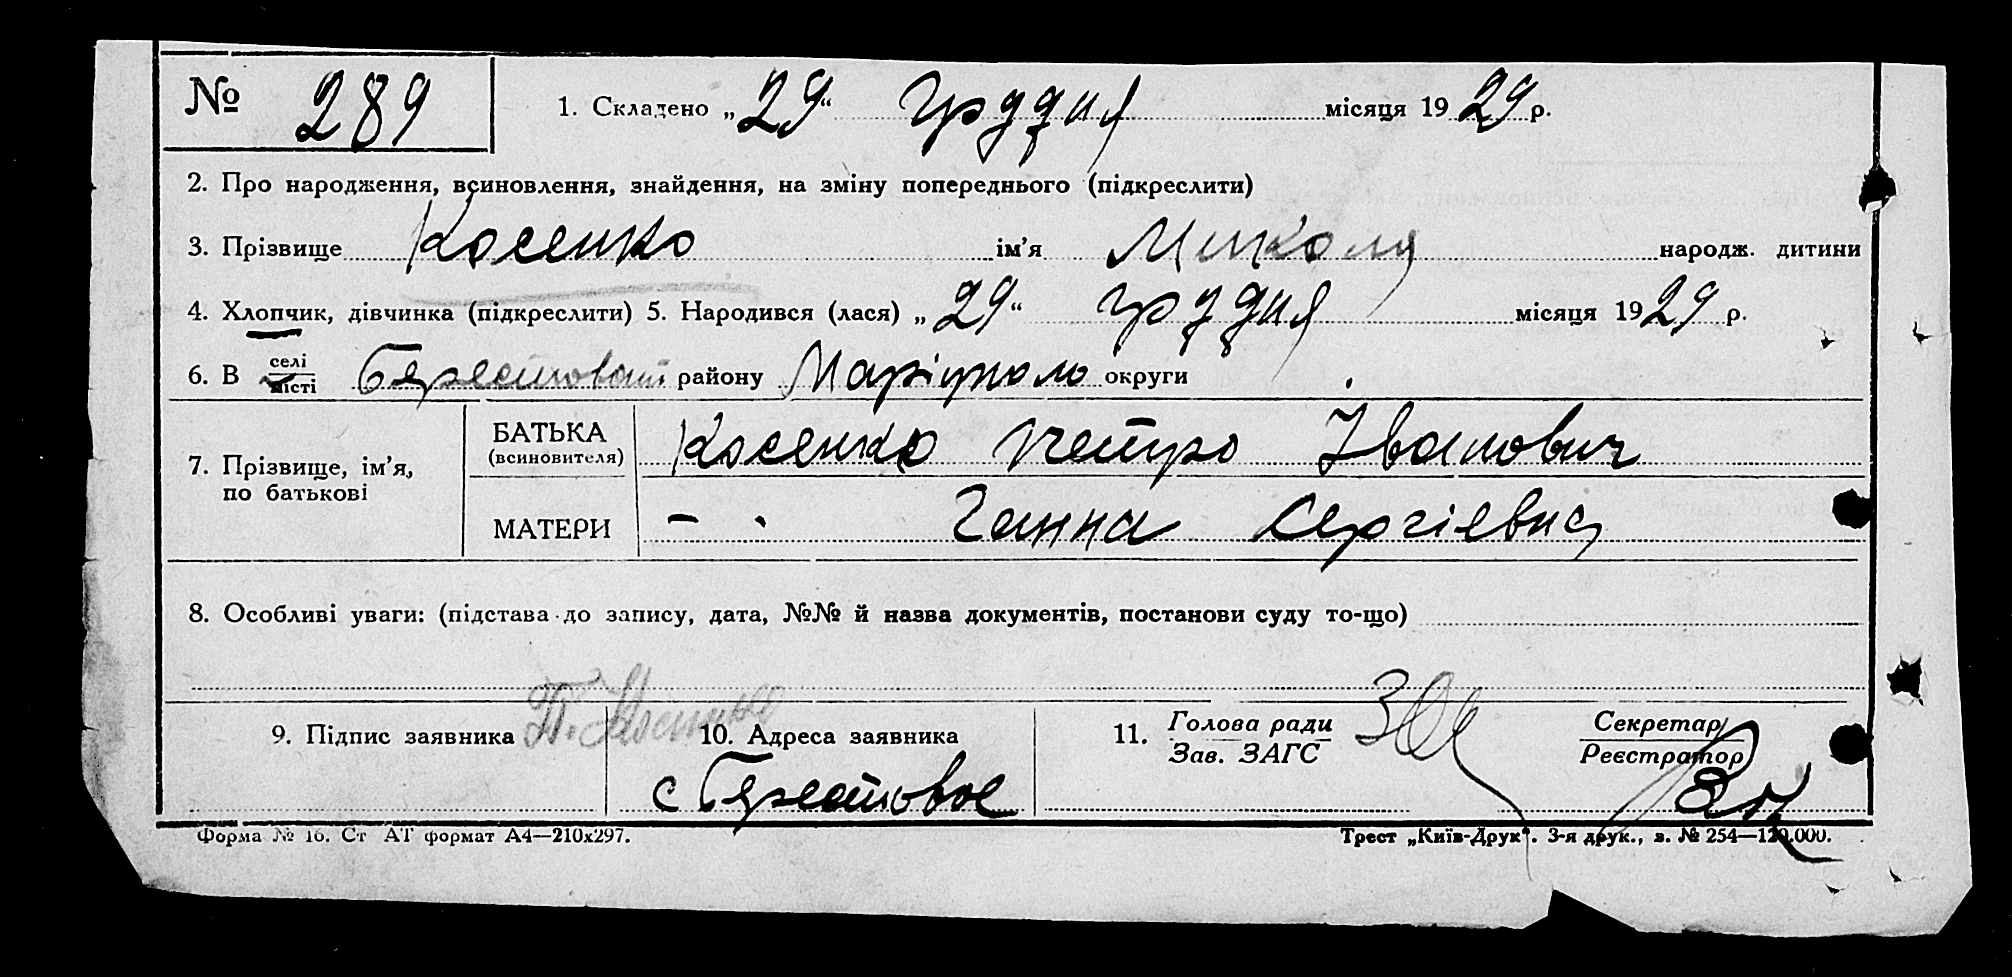 № 289 1. Складено „29“ грудня місяця 1929 р.
2. Про народження, всиновлення, знайдення, на зміну попереднього (підкреслити)
3. Прізвище Косенко ім’я Микола народж. дитини
4. Хлопчик, дівчинка (підкреслити) 5. Народився (лася) „29“ грудня місяця 1929 р.
6. В селі місті району Маріуполь округи
7. Прізвище, ім’я, по батькові
БАТЬКА (всиновителя) Косенко Петро Іванович
МАТЕРИ – . Ганна Сергіевна
8. Особливі уваги: (підстава до запису, дата, №№ й назва документів, постанови суду то-що)
9. Підпис заявника П. Косенко 10. Адреса заявника 11. Голова ради Зав. ЗАГС Секретар Реєстратор
с Берестовое
Форма № 16. Ст АТ формат А4—210х297. Трест „Київ-Друк“. 3-я друк., з. № 254—120.000.